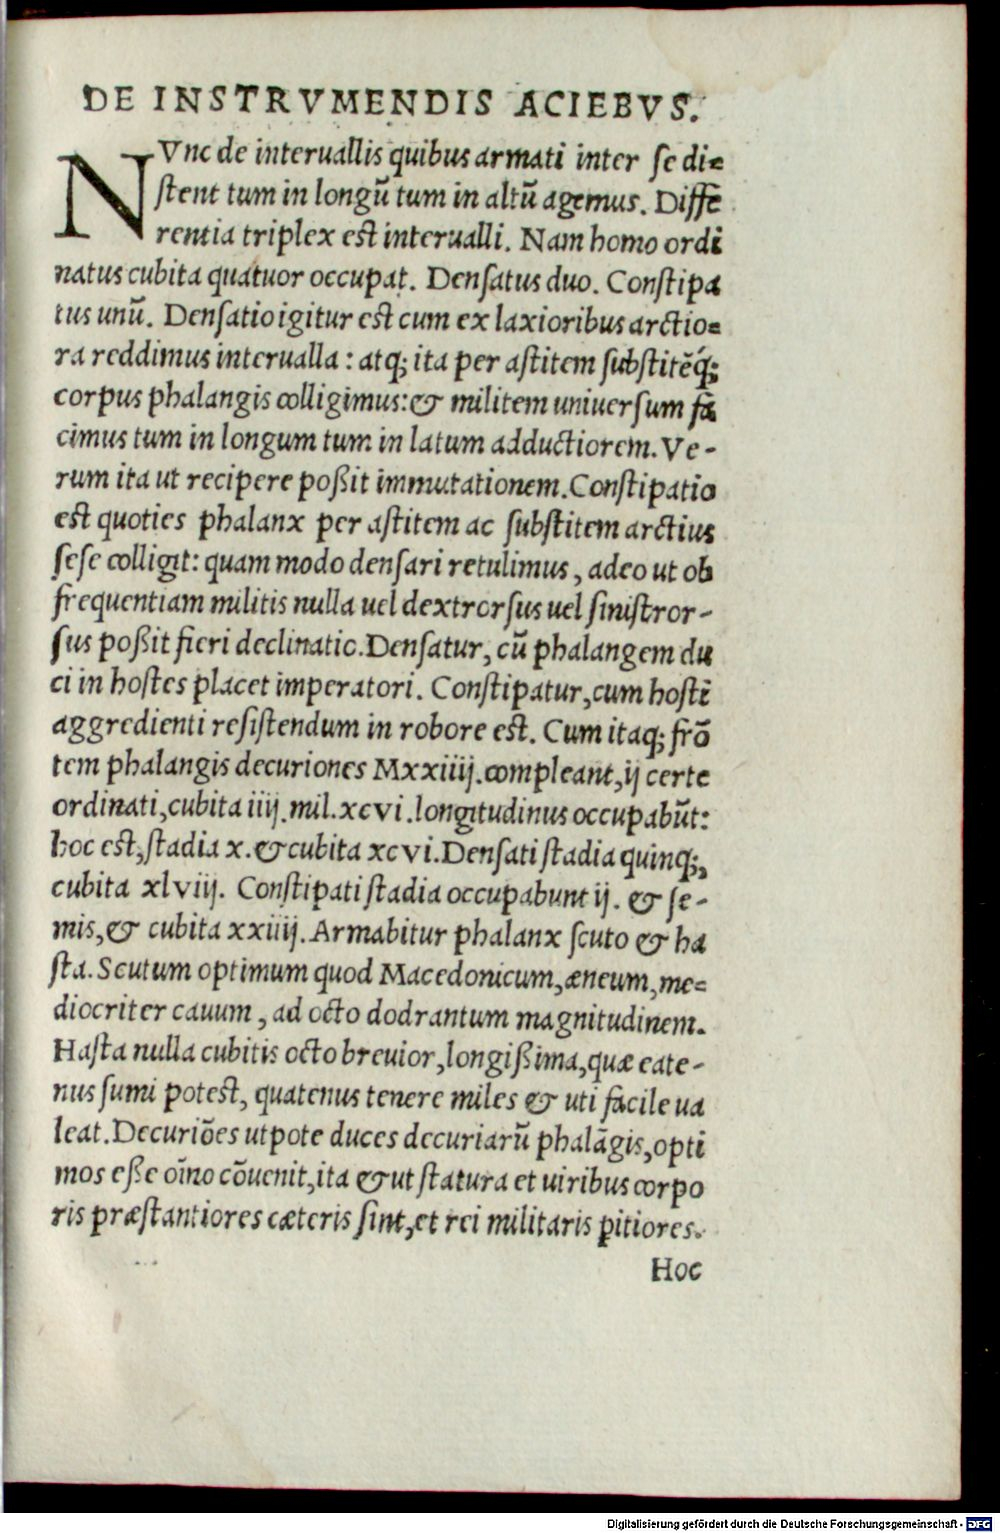 DE INSTRVMENDIS ACIEBVS.
NVnc de interuallis quibus armati inter se di=
stent tum in longū tum in altū agemus. Differē
rentia triplex est interualli. Nam homo ordi
natus cubita quatuor occupat. Densatus duo. Constipa
tus unū. Densatio igitur est cum ex laxioribus arctio=
ra reddimus interualla: atq; ita per astitem substitēq́;
corpus phalangis colligimus: & militem uniuersum fa
cimus tum in longum tum in latum adductiorem. Ve-
rum ita ut recipere poßit immutationem. Constipatio
est quoties phalanx per astitem ac substitem arctius
sese colligit: quam modo densari retulimus, adeo ut ob
frequentiam militis nulla uel dextrorsus uel sinistror-
sus poßit fieri declinatio. Densatur, cū phalangem du
ci in hostes placet imperatori. Constipatur, cum hosti
aggredienti resistendum in robore est. Cum itaq; frō
tem phalangis decuriones Mxxiiij. compleant, ij certe
ordinati, cubita iiij. mil. xcvi. longitudinus occupabūt:
hoc est, stadia x. & cubita xcvi. Densati stadia quinq;,
cubita xlviij. Constipati stadia occupabunt ij. & se-
mis, & cubita xxiiij. Armabitur phalanx scuto & ha
sta. Scutum optimum quod Macedonicum, æneum, me=
diocriter cauum, ad octo dodrantum magnitudinem.
Hasta nulla cubitis octo breuior, longißima, quæ eate-
nus sumi potest, quatenus tenere miles & uti facile ua
leat. Decuriōes utpote duces decuriarū phalāgis, opti
mos eße oīno cōuenit, ita & ut statura et uiribus corpo
ris præstantiores cæteris sint, et rei militaris ꝑitiores.
Hoc
Digitalisierung gefördert durch die Deutsche Forschungsgemeinschaft - DFG